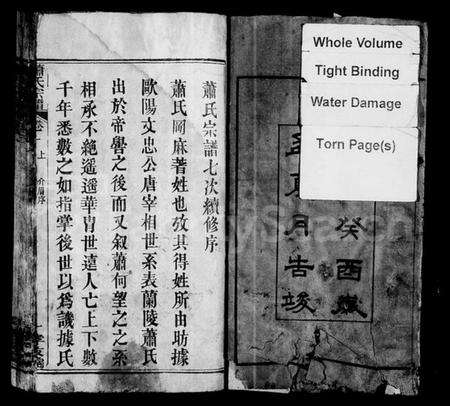 Whole Volume
Tight Binding
Water Damage
Torn Page(s)
癸酉歲
月告竣
蕭氏宗譜七次續修序
蕭氏嗣麻著姓也攷其得姓所由昉據
歐陽文忠公唐宰相世系表蘭陵蕭氏
出於帝嚳之後而又叙蕭何望之之系
相承不絶遥遥華胄世遠人亡上下數
千年悉數之如指掌後世以為譏據氏
蕭氏宗譜
卷
上